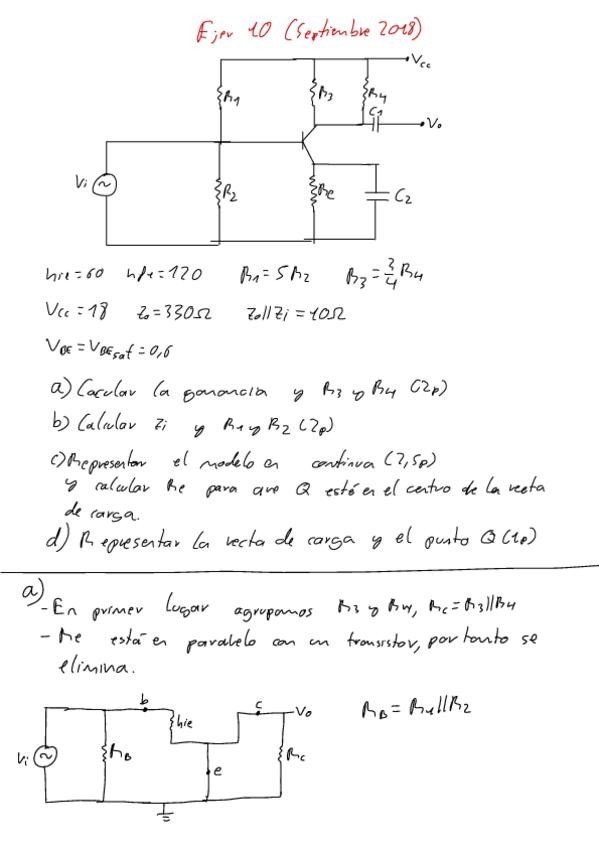 Ejer 10 (Septiembre 2018)
Vcc
R1
R3
R4
C1
Vo
Vi
R2
Re
C2
hie=60 hfe=120 R1=5R2 R3=3/4 R4
Vcc=18 Zo=330Ω Zo//Zi=10Ω
VBE=VBEsat=0,6
a) Cacular la ganancia y R3 y R4 (2p)
b) Calcular Zi y R1 y R2 (2p)
c) Representar el modelo en continua (2,5p)
y calcular Re para que Q esté en el centro de la recta
de carga.
d) Representar la recta de carga y el punto Q (1p)
a)
- En primer lugar agrupamos R3 y R4, Rc=R3//R4
- Re está en paralelo con un transistor, por tanto se
elimina.
b
c
Vo
RB=R1//R2
hie
Vi
RB
e
Rc